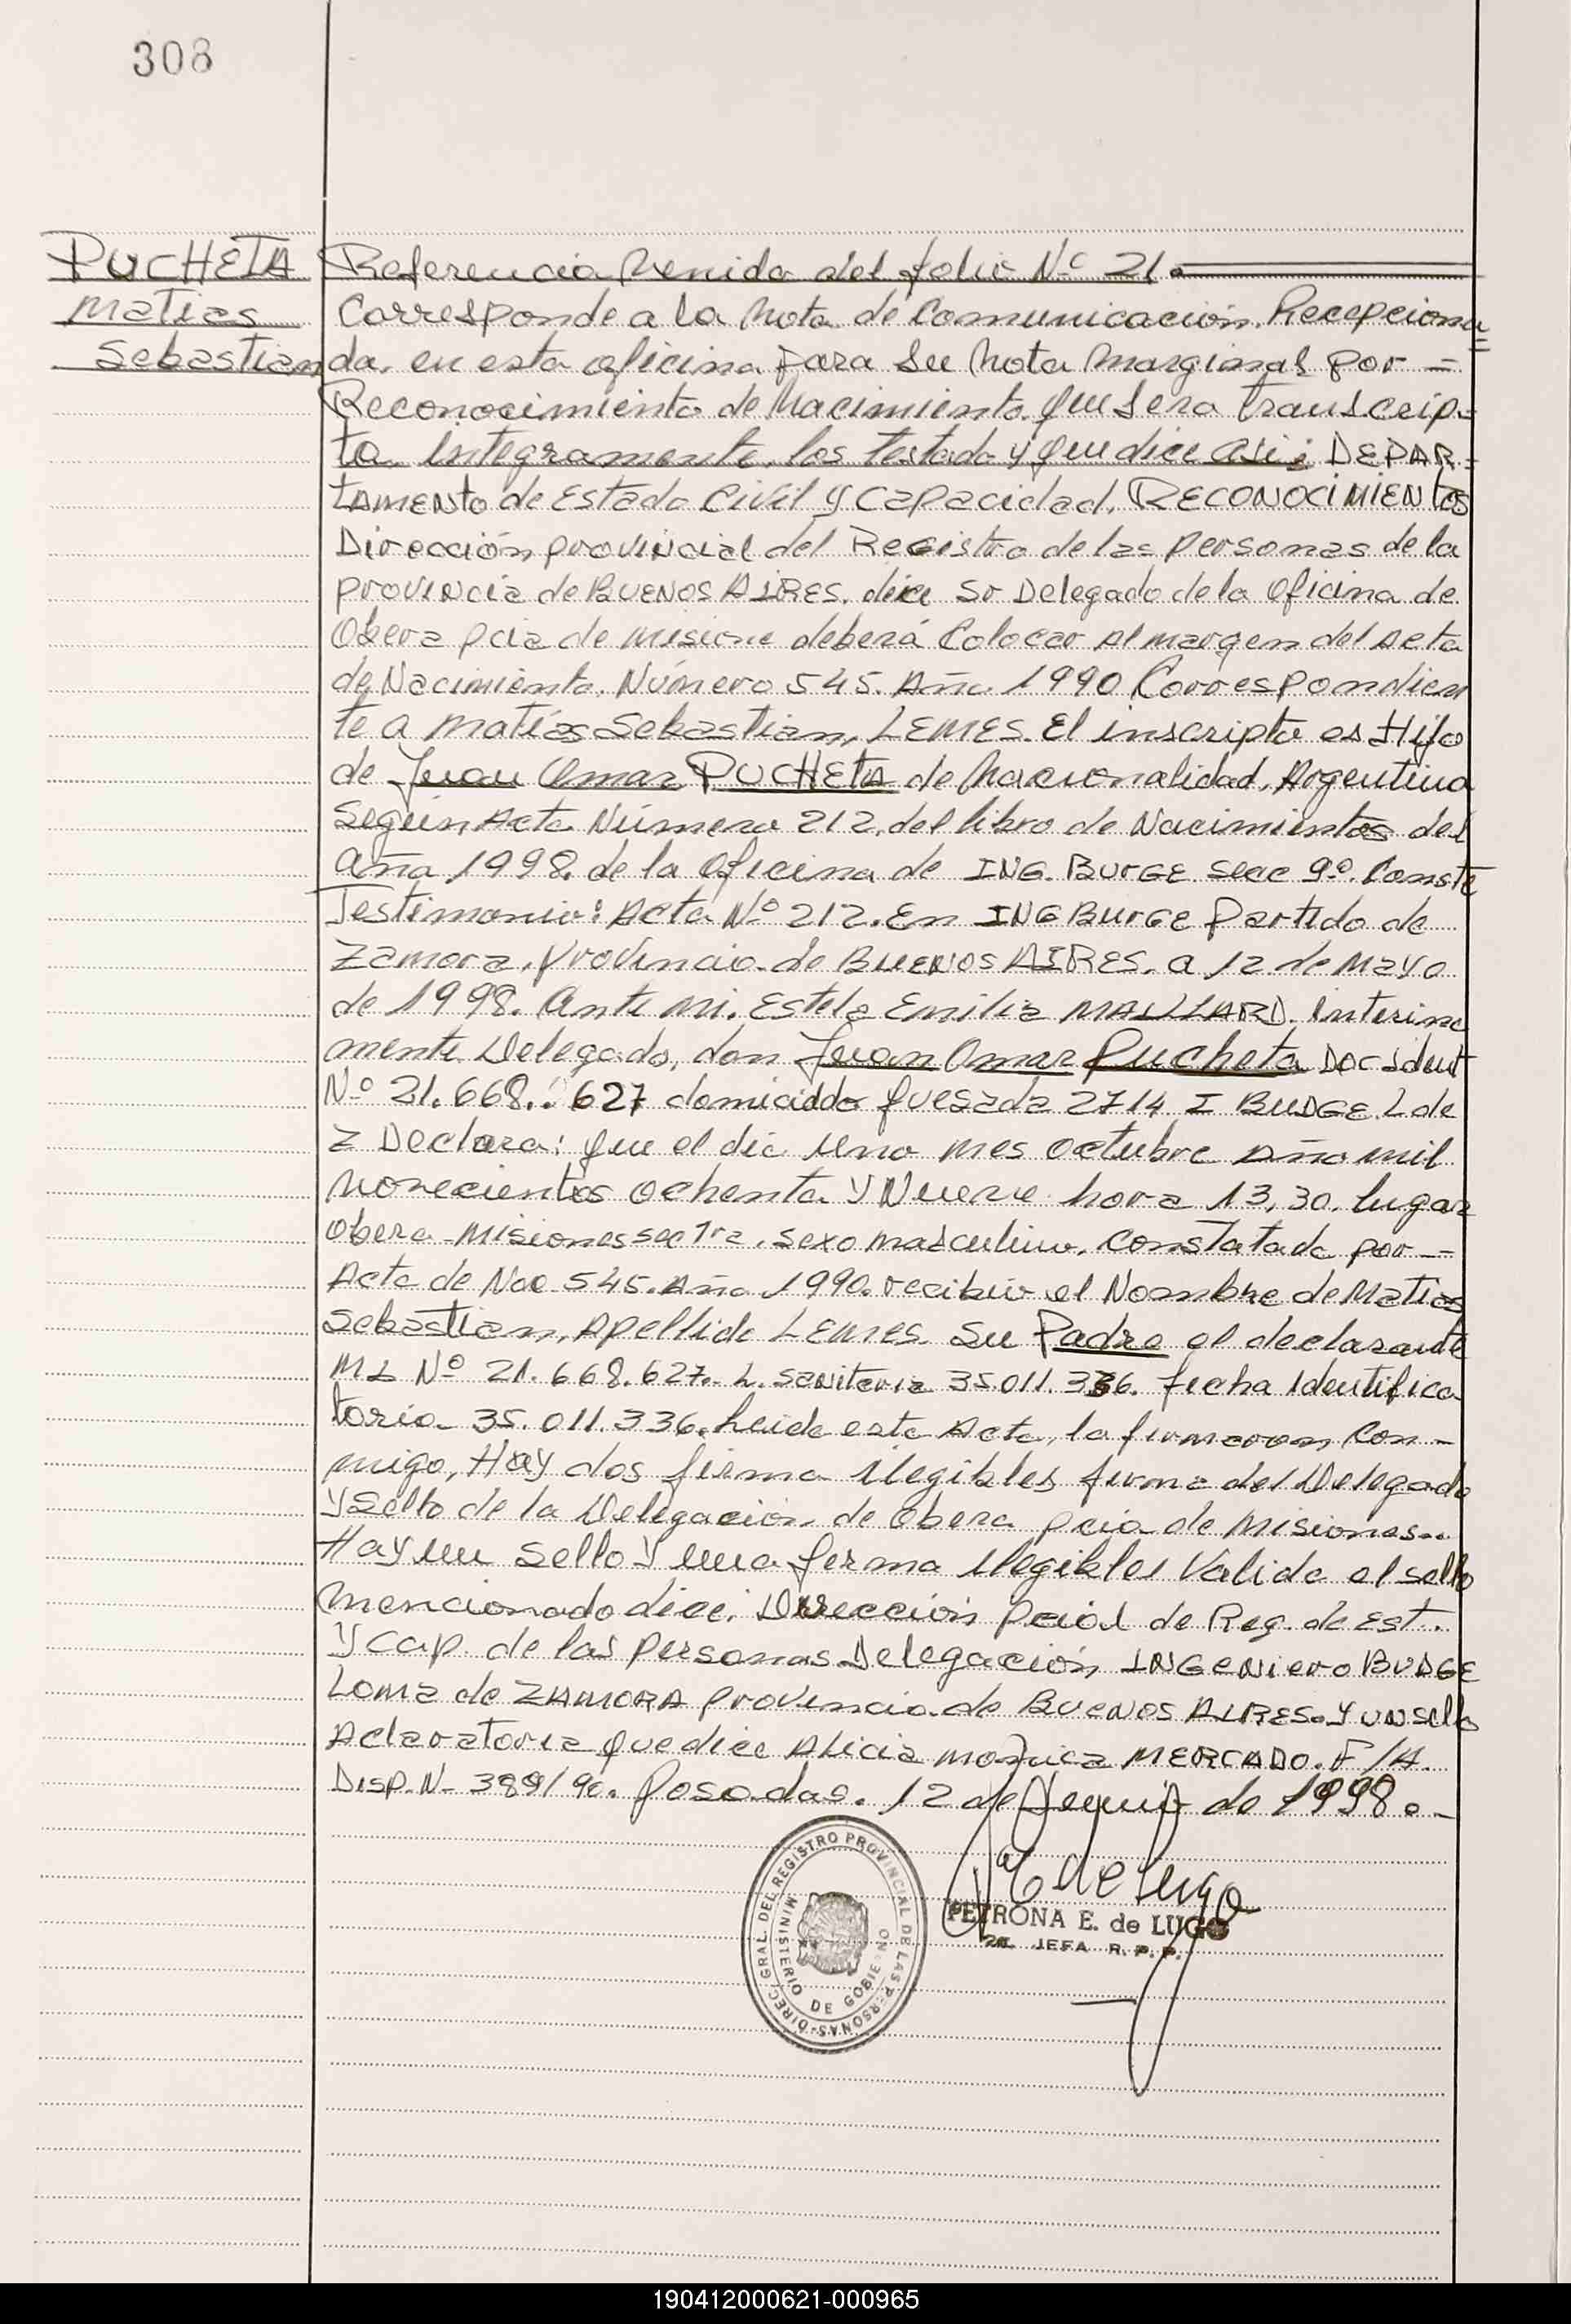 308
PUCHETA
Matias
Sebastian
Referencia Venida del folio Nº 21.
Corresponde a la Nota de Comunicación. Recepciona
da. en esta oficina para su Nota Marginal por =
Reconocimiento de Nacimiento. que sera transcrip=
ta integramente. los testado y que dice asi: DEPAR=
TAMENTO de Estado Civil y Capacidad. RECONOCIMIENtos
Dirección provincial del Registro de las personas de la
provincia de BUENOS AIRES. dice Sr Delegado de la Oficina de
Obera pcia de misione deberá Colocar Al margen del Acta
de Nacimiento. Número 545. Año 1990 Correspondien
te a Matías Sebastian, LEMES. El inscripto es Hijo
de Juan Omar PUCHETA de Nacionalidad. Argentina
Según Acta Número 212. del libro de Nacimientos del
año 1998. de la Oficina de ING. BURGE secc 9º. Conste
Testimonio: Acta Nº 212. En ING BURGE Partido de
Zamora. Provincia de BUENOS AIRES. a 12 de Mayo
de 1998. Ante mi. Estela Emilia MALLARD. Interina
mente Delegado, don Juan Omar Pucheta Doc Ident
Nº 21.668.627 domiciddo quesada 2714 I BUDGE. L de
Z Declara: que el dia Uno mes Octubre Año mil
novecientos ochenta y Nueve hora 13,30. lugar
Obera - Misiones sec 1ra. sexo masculino. Constatada por -
Acta de Nac 545. Año 1990. recibio el Nombre de Matias
Sebastian, Apellido LEMES. Su Padre el declarante
MI Nº 21.668.627.- L. sanitaria 35.011.336. ficha Identifica
toria 35.011.336. Leida esta Acta, la firmaron con -
migo, Hay dos firma ilegibles firma del Delegado
y Sello de la Delegación de Obera pcia de Misiones..
Hay un Sello y una firma ilegibles Valida el sello
mencionado dice. Dirección Pcial de Reg. de Est.
y Cap. de las Personas Delegación INGeniero BUDGE
Loma de ZAMORA provincia de BUENOS AIRES. y un sello
Aclaratoria que dice Alicia Monica MERCADO. F/A.
Disp. N- 389/90. Posadas. 12 de Junio de 1998.-
DIREC. GRAL. DEL REGISTRO PROVINCIAL DE LAS PERSONAS
MINISTERIO DE GOBIERNO
PETRONA E. de LUGO
2a. JEFA R. P. P.
190412000621-000965